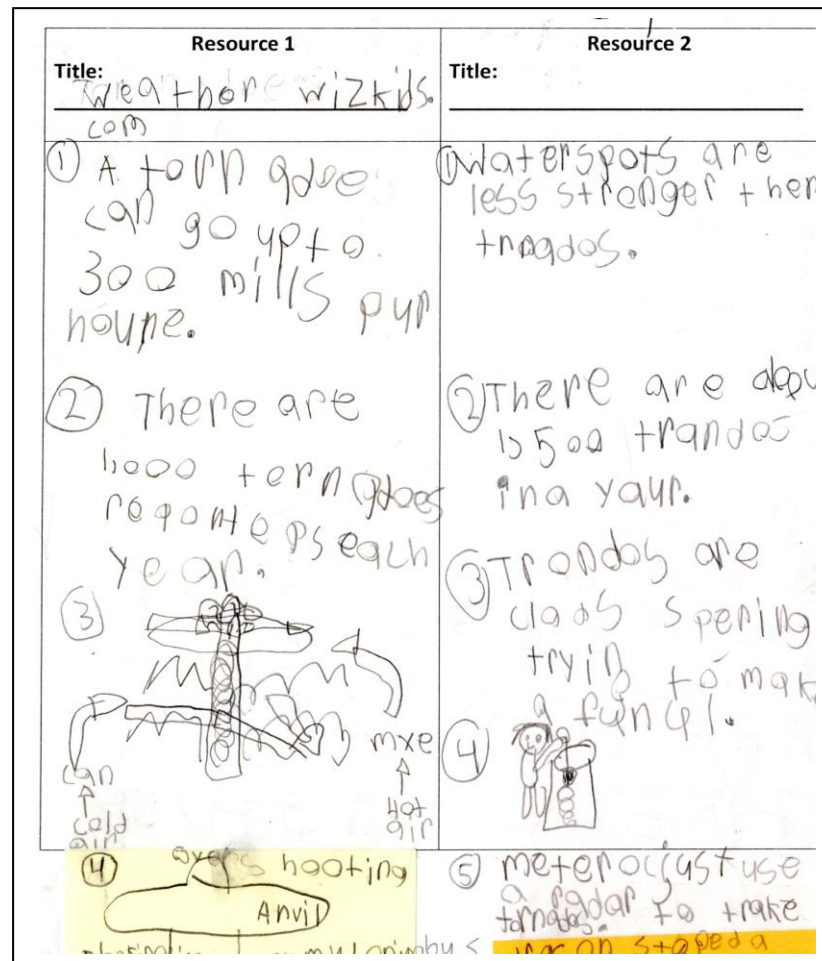 Resource 1
Title:
weathore wizkids.
com
① A tornadoe
can go upto
300 mills pur
houre.
② There are
1,000 ternadoes
reporteps each
year.
③
can
cold
air
mxe
Hot
air
④ overshooting
Anvil
Resource 2
Title:
① Waterspots are
less stronger then
trnados.
② There are abou
1,500 trandos
in a yaur.
③ Trondos are
clads spering
tryin to mak
a funcl.
④
⑤ meterocijust use
a radar to trake
tornados.
stoped a